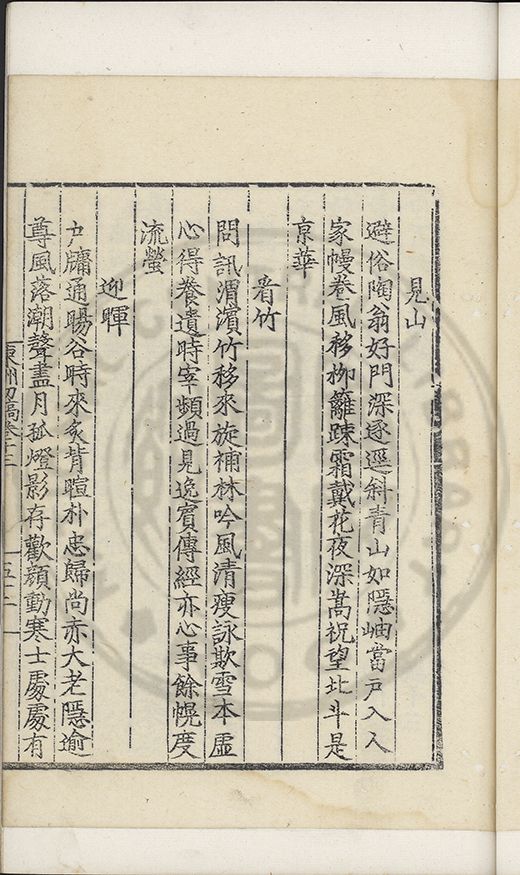 見山
避俗陶翁好門深逐逕斜青山如隱岫當戸入人
家幔卷風移栁籬踈霜戴花夜深嵩祝望北斗是
京華
看竹
問訊渭濱竹移來旋補林吟風清瘦詠欺雪本虛
心得養遺時宰頻過見逸賓傳經亦心事餘幌度
流螢
迎暉
戸牗通暘谷時來炙背暄朴忠歸尚赤大老隱逾
尊風落潮聲盡月孤燈影存歡顔動寒士處處有
東洲初稿卷十三
五十二